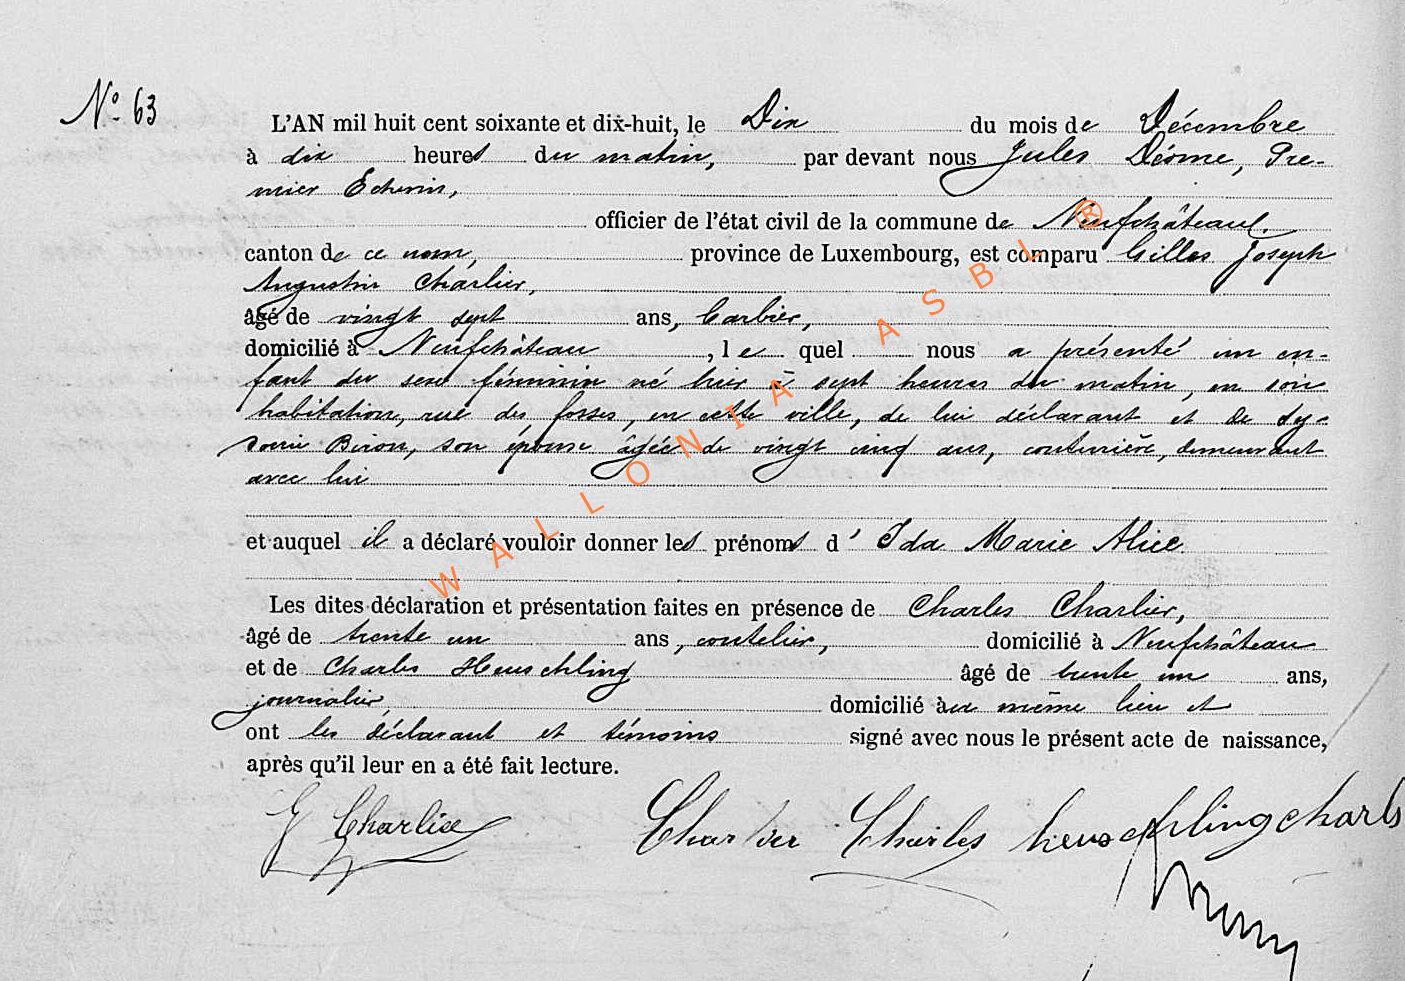 N° 63
L'AN mil huit cent soixante et dix-huit, le Dix du mois de Décembre
à dix heures du matin, par devant nous Jules Déome, Pre-
mier Echevin,
officier de l'état civil de la commune de Neufchâteau.
canton de ce nom, province de Luxembourg, est comparu Gilles Joseph
Augustin Charlier,
âgé de vingt sept ans, barbier,
domicilié à Neufchâteau, le quel nous a présenté un en-
fant du sexe féminin né hier à sept heures du matin, en son
habitation, rue des fosses, en cette ville, de lui déclarant et de
Biron, son épouse âgée de vingt cinq ans, couturière, demeurant
avec lui
et auquel il a déclaré vouloir donner les prénoms d'Ida Marie Alice
Les dites déclaration et présentation faites en présence de Charles Charlier,
âgé de trente un ans, coutelier, domicilié à Neufchâteau
et de Charles Heuschling âgé de trente un ans,
journalier, domicilié au même lieu et
ont les déclarant et témoins signé avec nous le présent acte de naissance,
après qu'il leur en a été fait lecture.
G Charlier Charlier Charles heuschling charls
WALLONIA ASBL ®